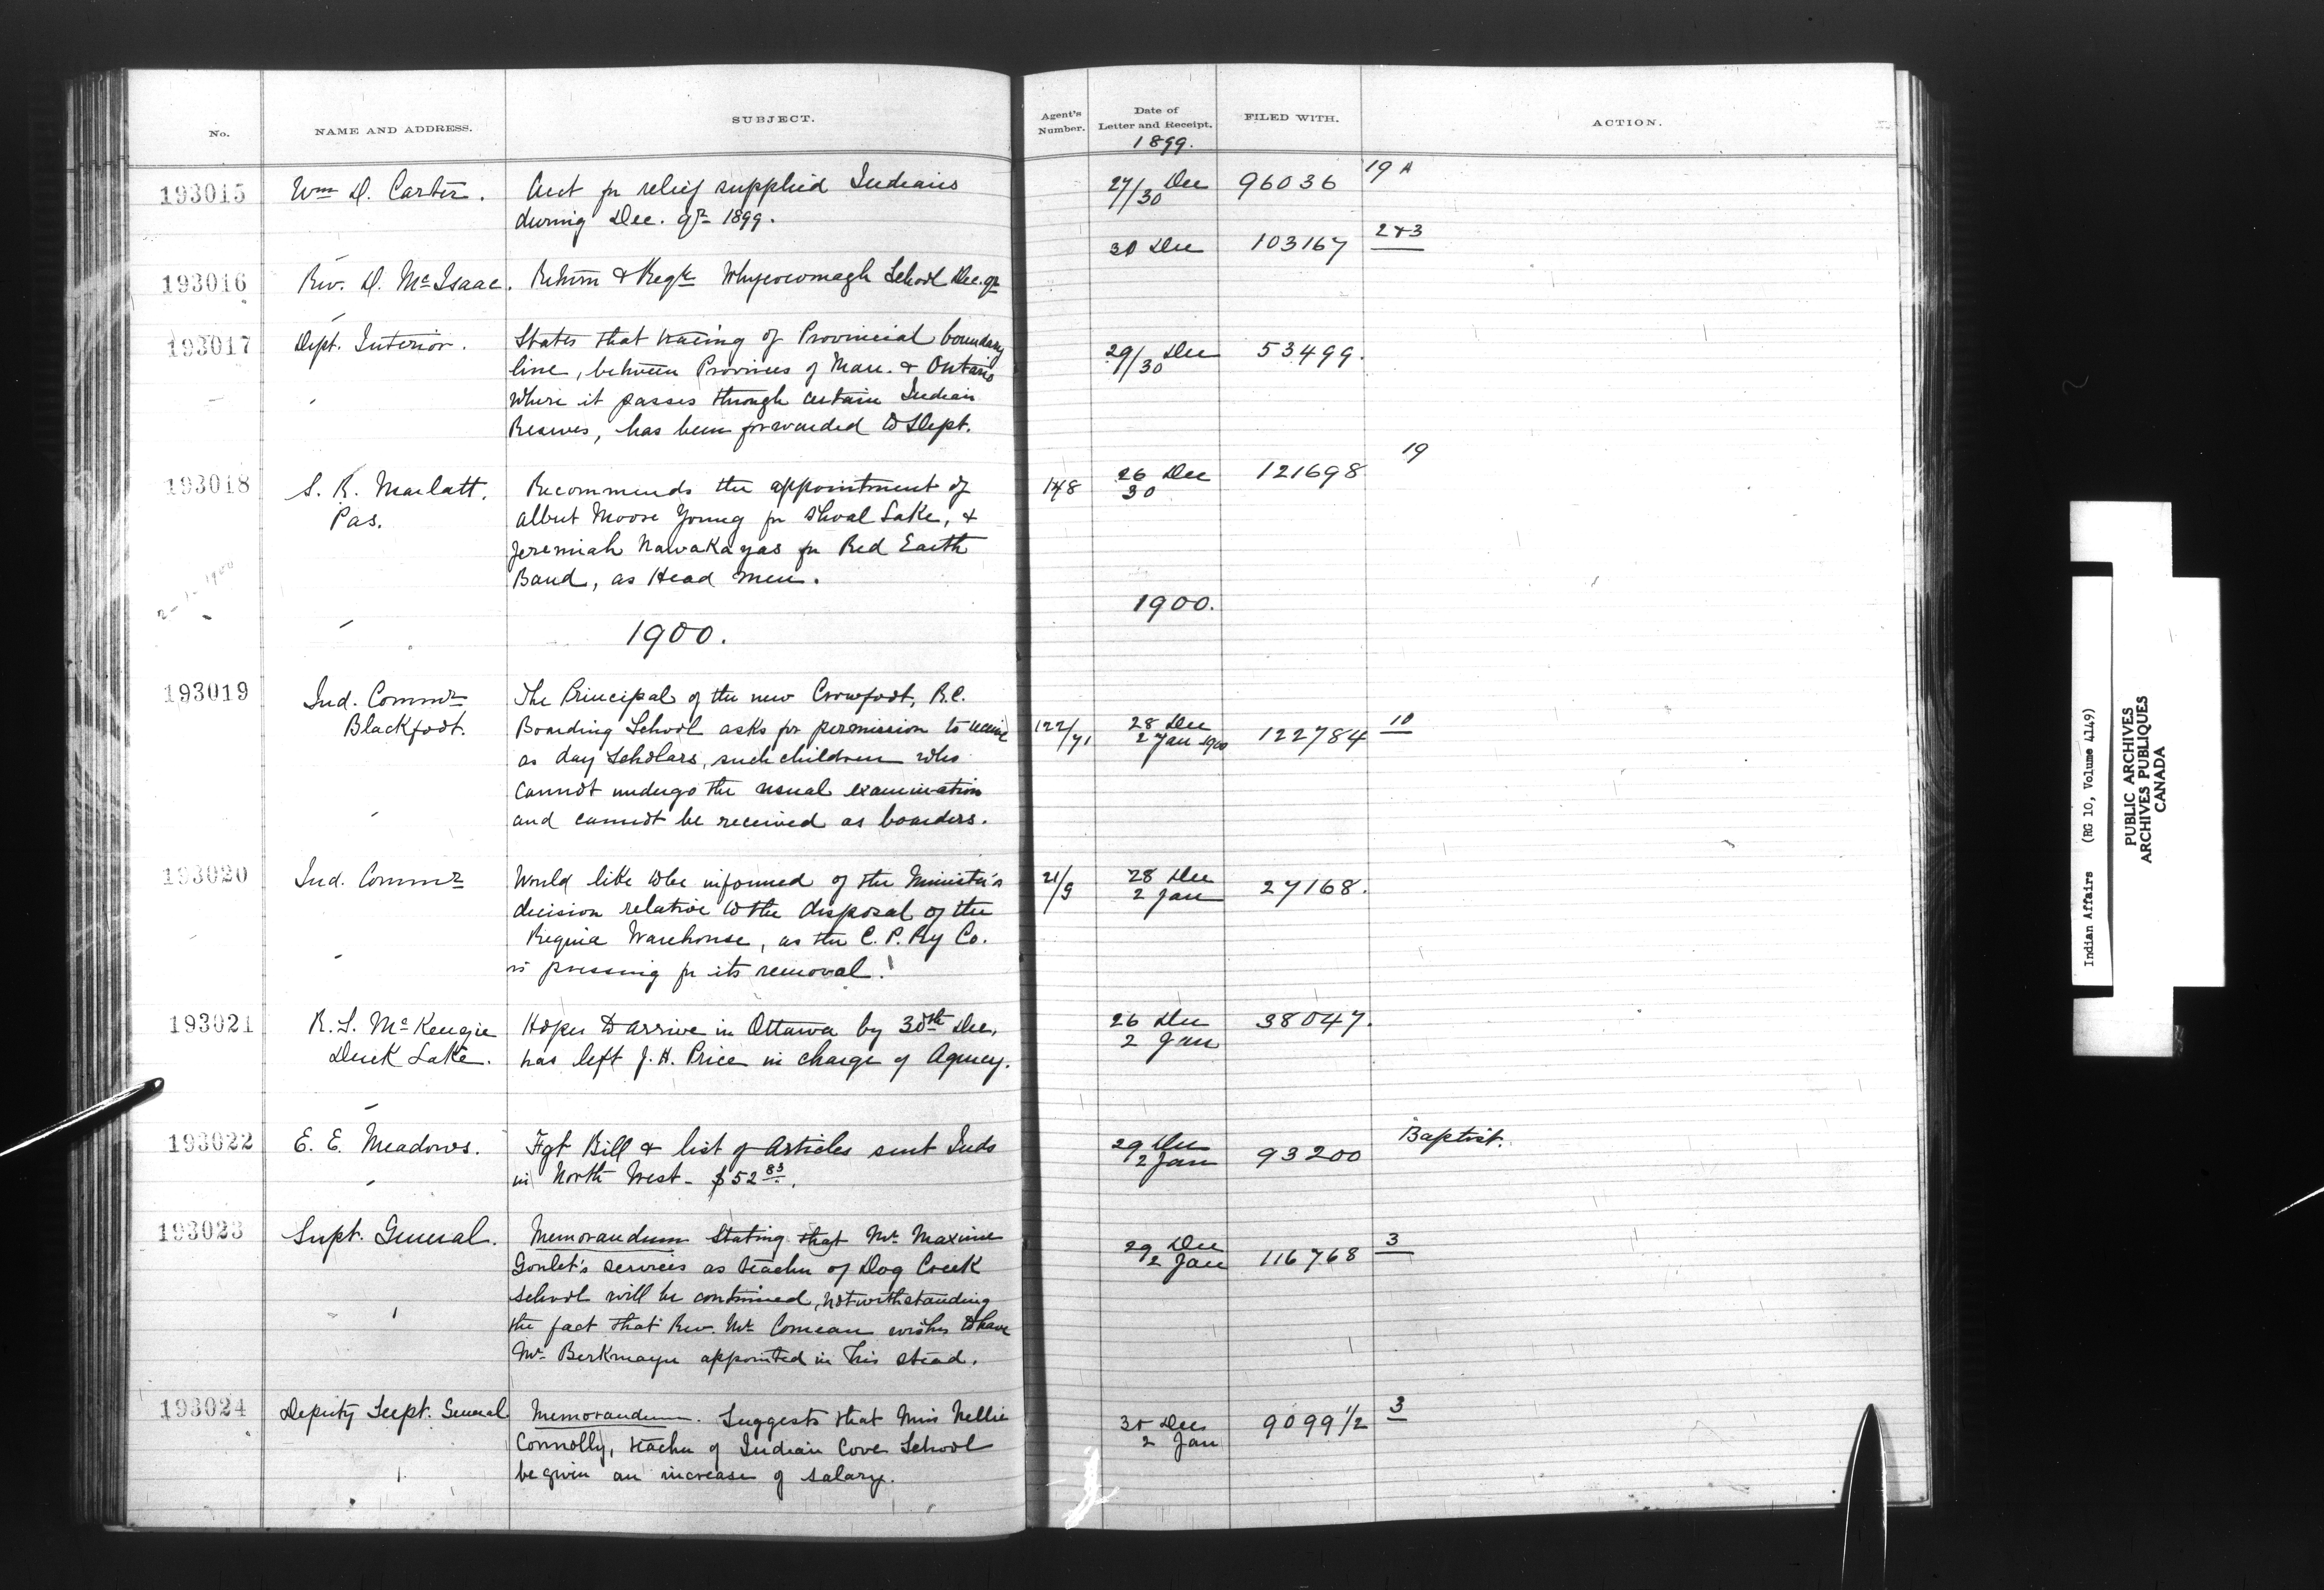 No. NAME AND ADDRESS. SUBJECT. Agent's Number. Date of Letter and Receipt. FILED WITH. ACTION.
1899.
193015 Wm D. Carter. Acct for relief supplied Indians 27/30 Dec 96036 19 A
during Dec. qr 1899.
30 Dec 103167 2+3
193016 Rev. D. McIsaac. Return & Reqte Whycocomagh School Dec. qr
193017 Dept. Interior. States that tracing of Provincial boundary
line, between Provinces of Man. & Ontario 29/30 Dec 53499.
where it passes through certain Indian
Reserves, has been forwarded to Dept.
193018 S. R. Marlatt. Recommends the appointment of 148 26 Dec 121698 19
Pas. Albert Moore Young for Shoal Lake, & 30
Jeremiah Nawakayas for Red Earth
Band, as Head men.
2-1-1900
1900. 1900.
193019 Ind. Commr The Principal of the new Crowfoot, R.C.
Blackfoot. Boarding School asks for permission to receive 122/71 28 Dec 122784 10
2 Jan 1900
as day scholars, such children who
cannot undergo the usual examination
and cannot be received as boarders.
193020 Ind. Commr Would like to be informed of the Minister's 21/9 28 Dec 27168.
decision relative to the disposal of the 2 Jan
Regina Warehouse, as the C. P. Ry Co.
is pressing for its removal.
193021 R. S. McKenzie Hopes to arrive in Ottawa by 30th Dec, 26 Dec 38047.
Duck Lake. has left J. H. Price in charge of Agency. 2 Jan
193022 E. E. Meadows. Fgt Bill & list of Articles sent Inds 29 Dec 93200 Baptist.
in North West - $52 83. 2 Jan
193023 Supt. General. Memorandum stating that Mr Maxime 29 Dec 116768 3
Goulet's services as teacher of Dog Creek 2 Jan
School will be continued, notwithstanding
the fact that Rev. Mr Comeau wishes to have
Mr Berkmayer appointed in his stead.
193024 Deputy Supt. General Memorandum. Suggests that Miss Nellie 30 Dec 9099 1/2 3
Connolly, teacher of Indian Cove School 2 Jan
be given an increase of salary.
Indian Affairs (RG 10, Volume 4149)
PUBLIC ARCHIVES
ARCHIVES PUBLIQUES
CANADA